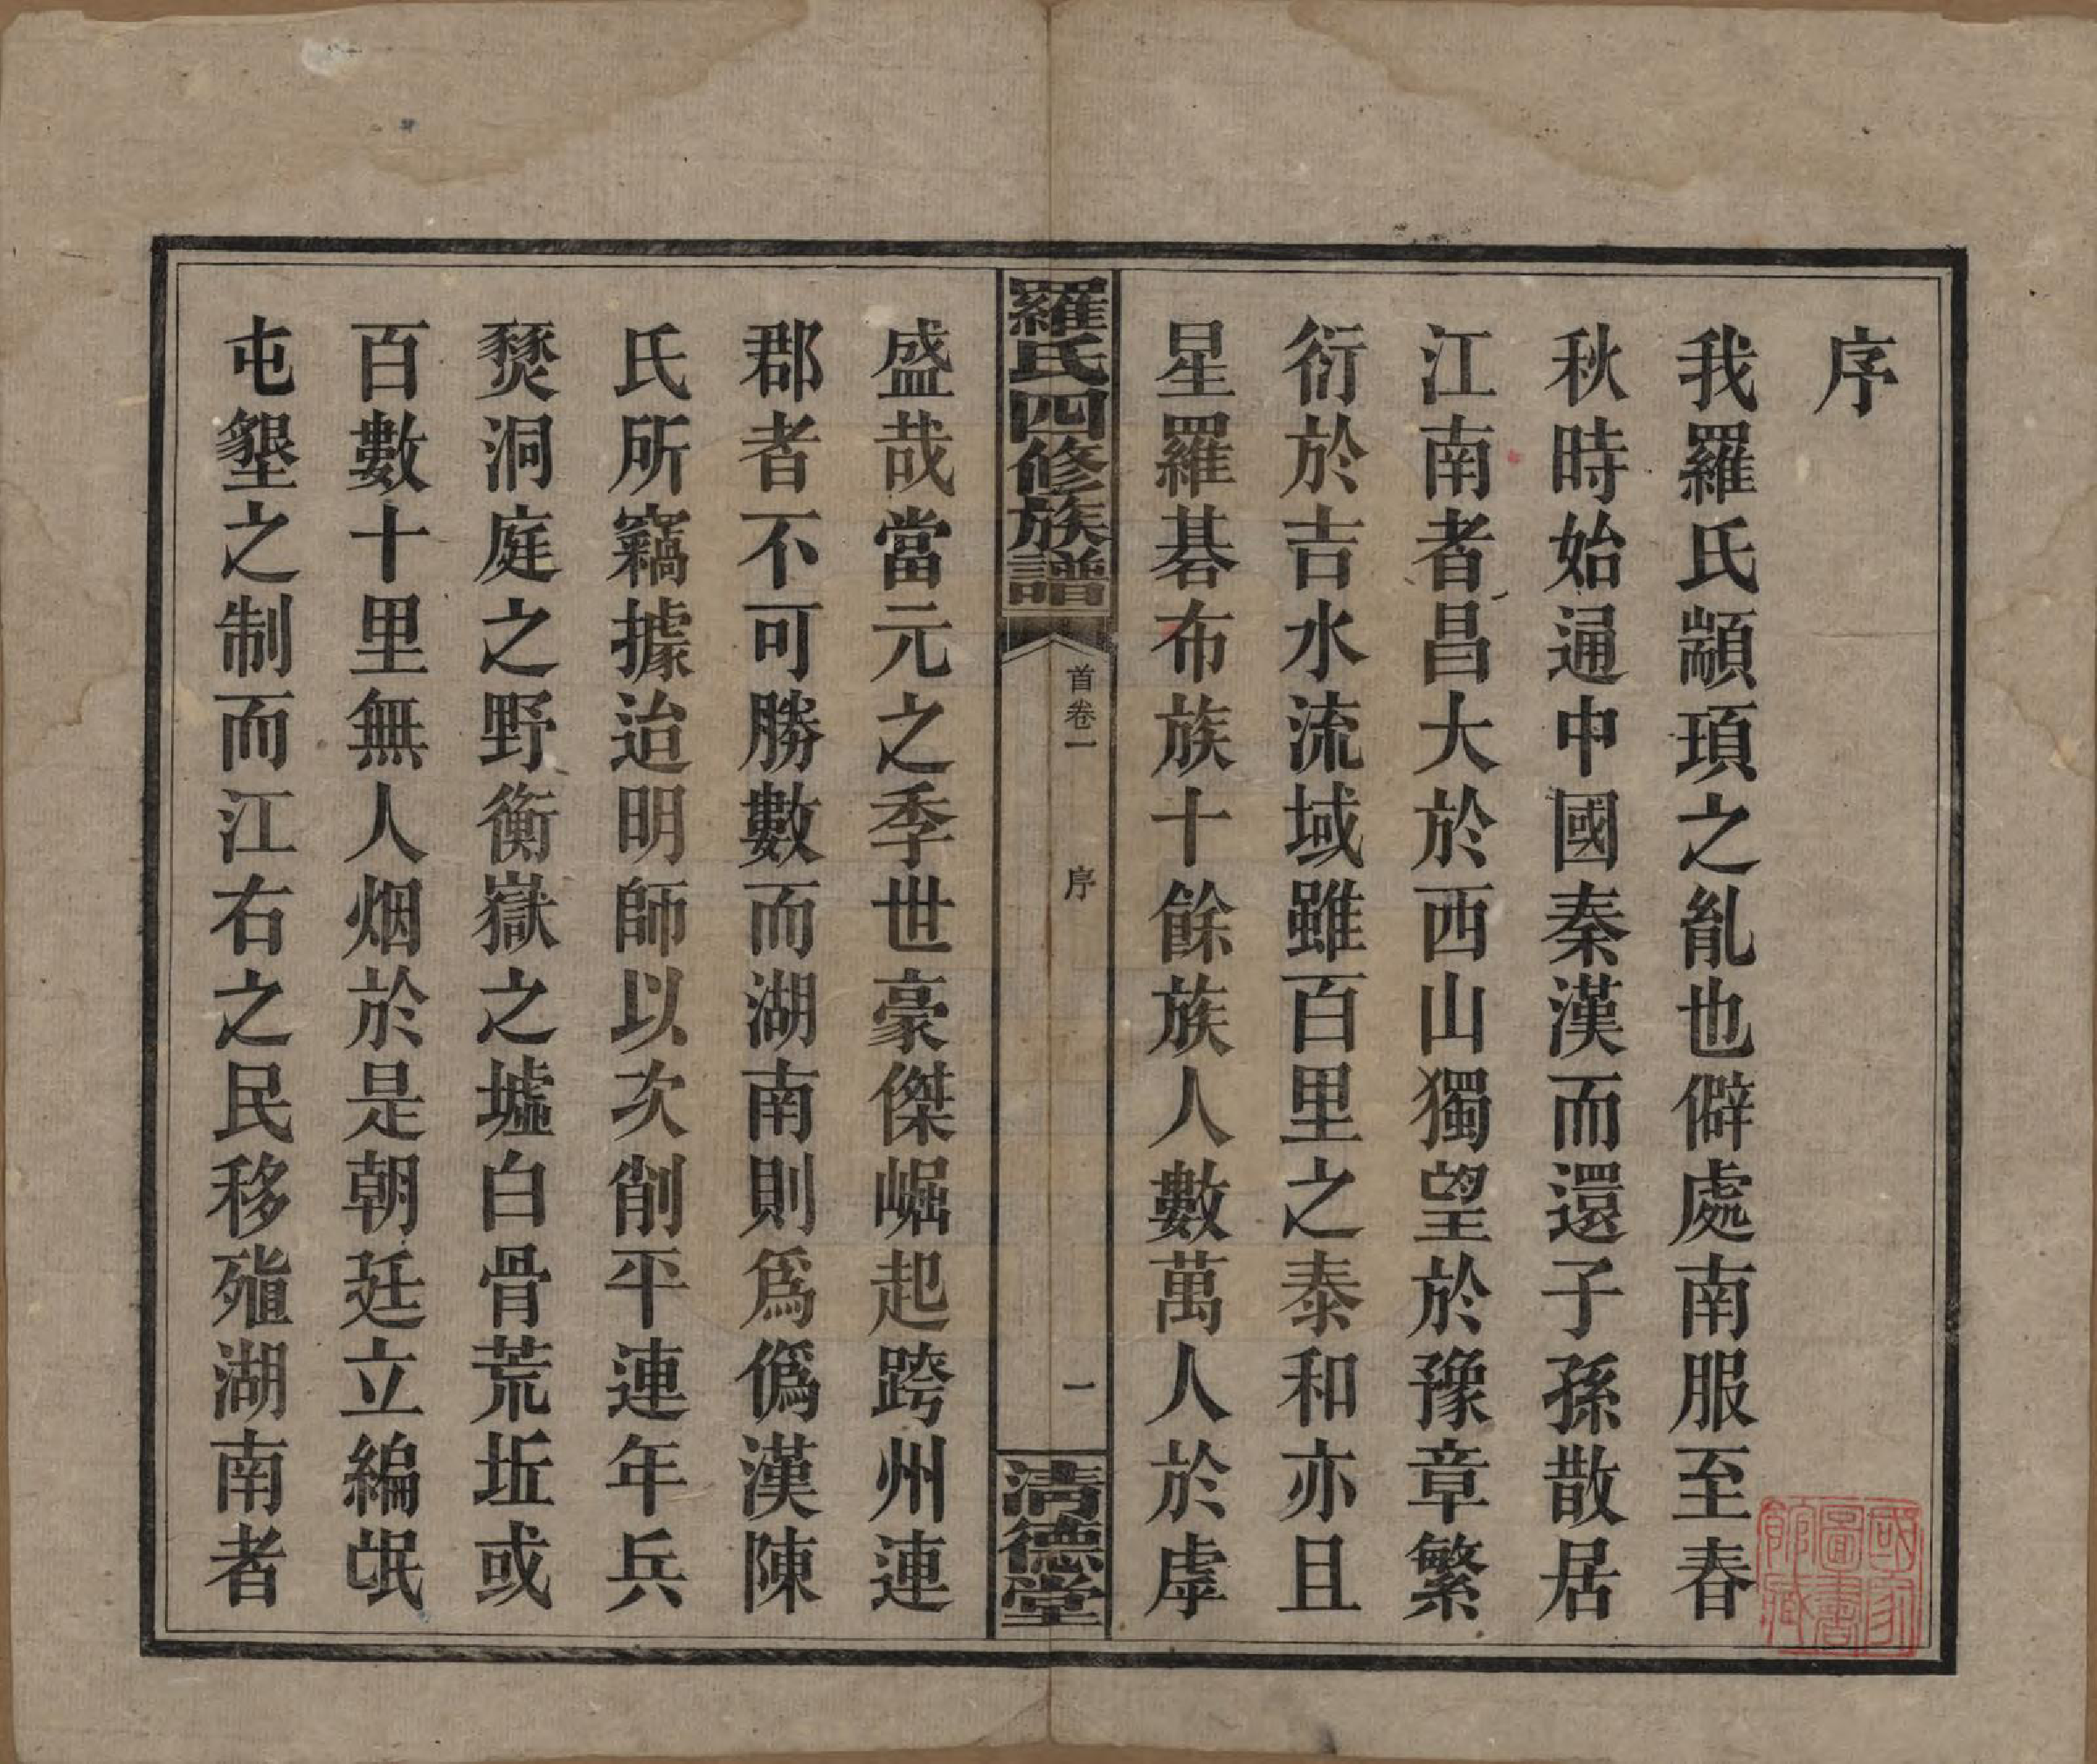 序
我羅氏顓頊之胤也僻處南服至春
秋時始通中國秦漢而還子孫散居
江南者昌大於西山獨望於豫章繁
衍於吉水流域雖百里之泰和亦且
星羅碁布族十餘族人數萬人於虖
羅氏四修族譜
首卷一
序
一
清德堂
盛哉當元之季世豪傑崛起跨州連
郡者不可勝數而湖南則爲僞漢陳
氏所竊據迨明師以次削平連年兵
燹洞庭之野衡嶽之墟白骨荒坵或
百數十里無人烟於是朝廷立編氓
屯墾之制而江右之民移殖湖南者
國家
圖書
館藏